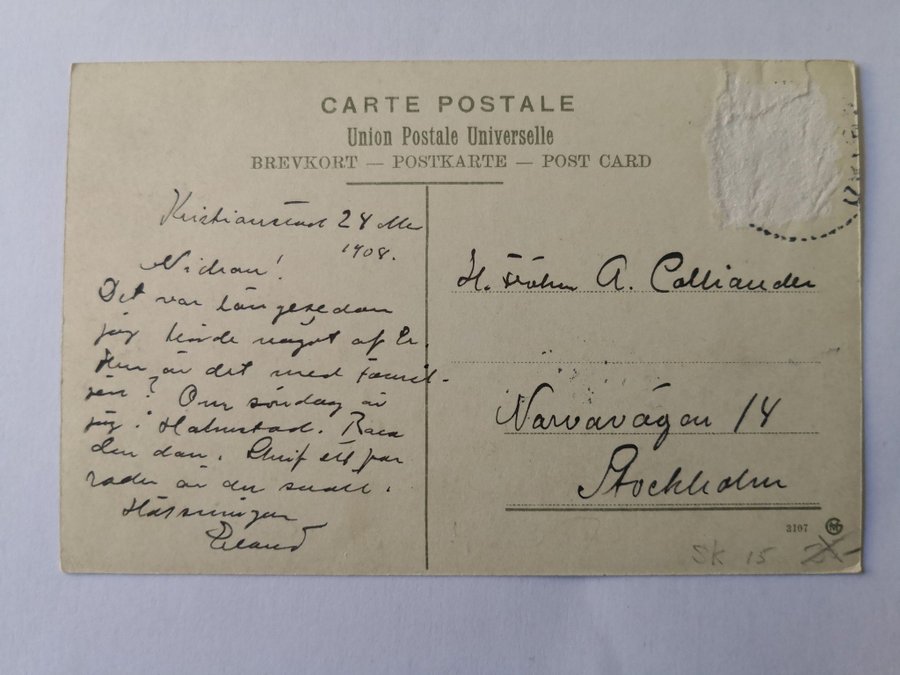 CARTE POSTALE
Union Postale Universelle
BREVKORT — POSTKARTE — POST CARD
Kristianstad 24
1908.
Det var länge sedan
jag hörde något af Er.
Hur är det med famil-
jen? Om söndag är
jag i Halmstad. Bara
den dan. Skrif ett par
rader är du snäll.
Hälsningar
Erland
H. Fröken A. Colliander
Narvavägen 14
Stockholm
3107
SK 15